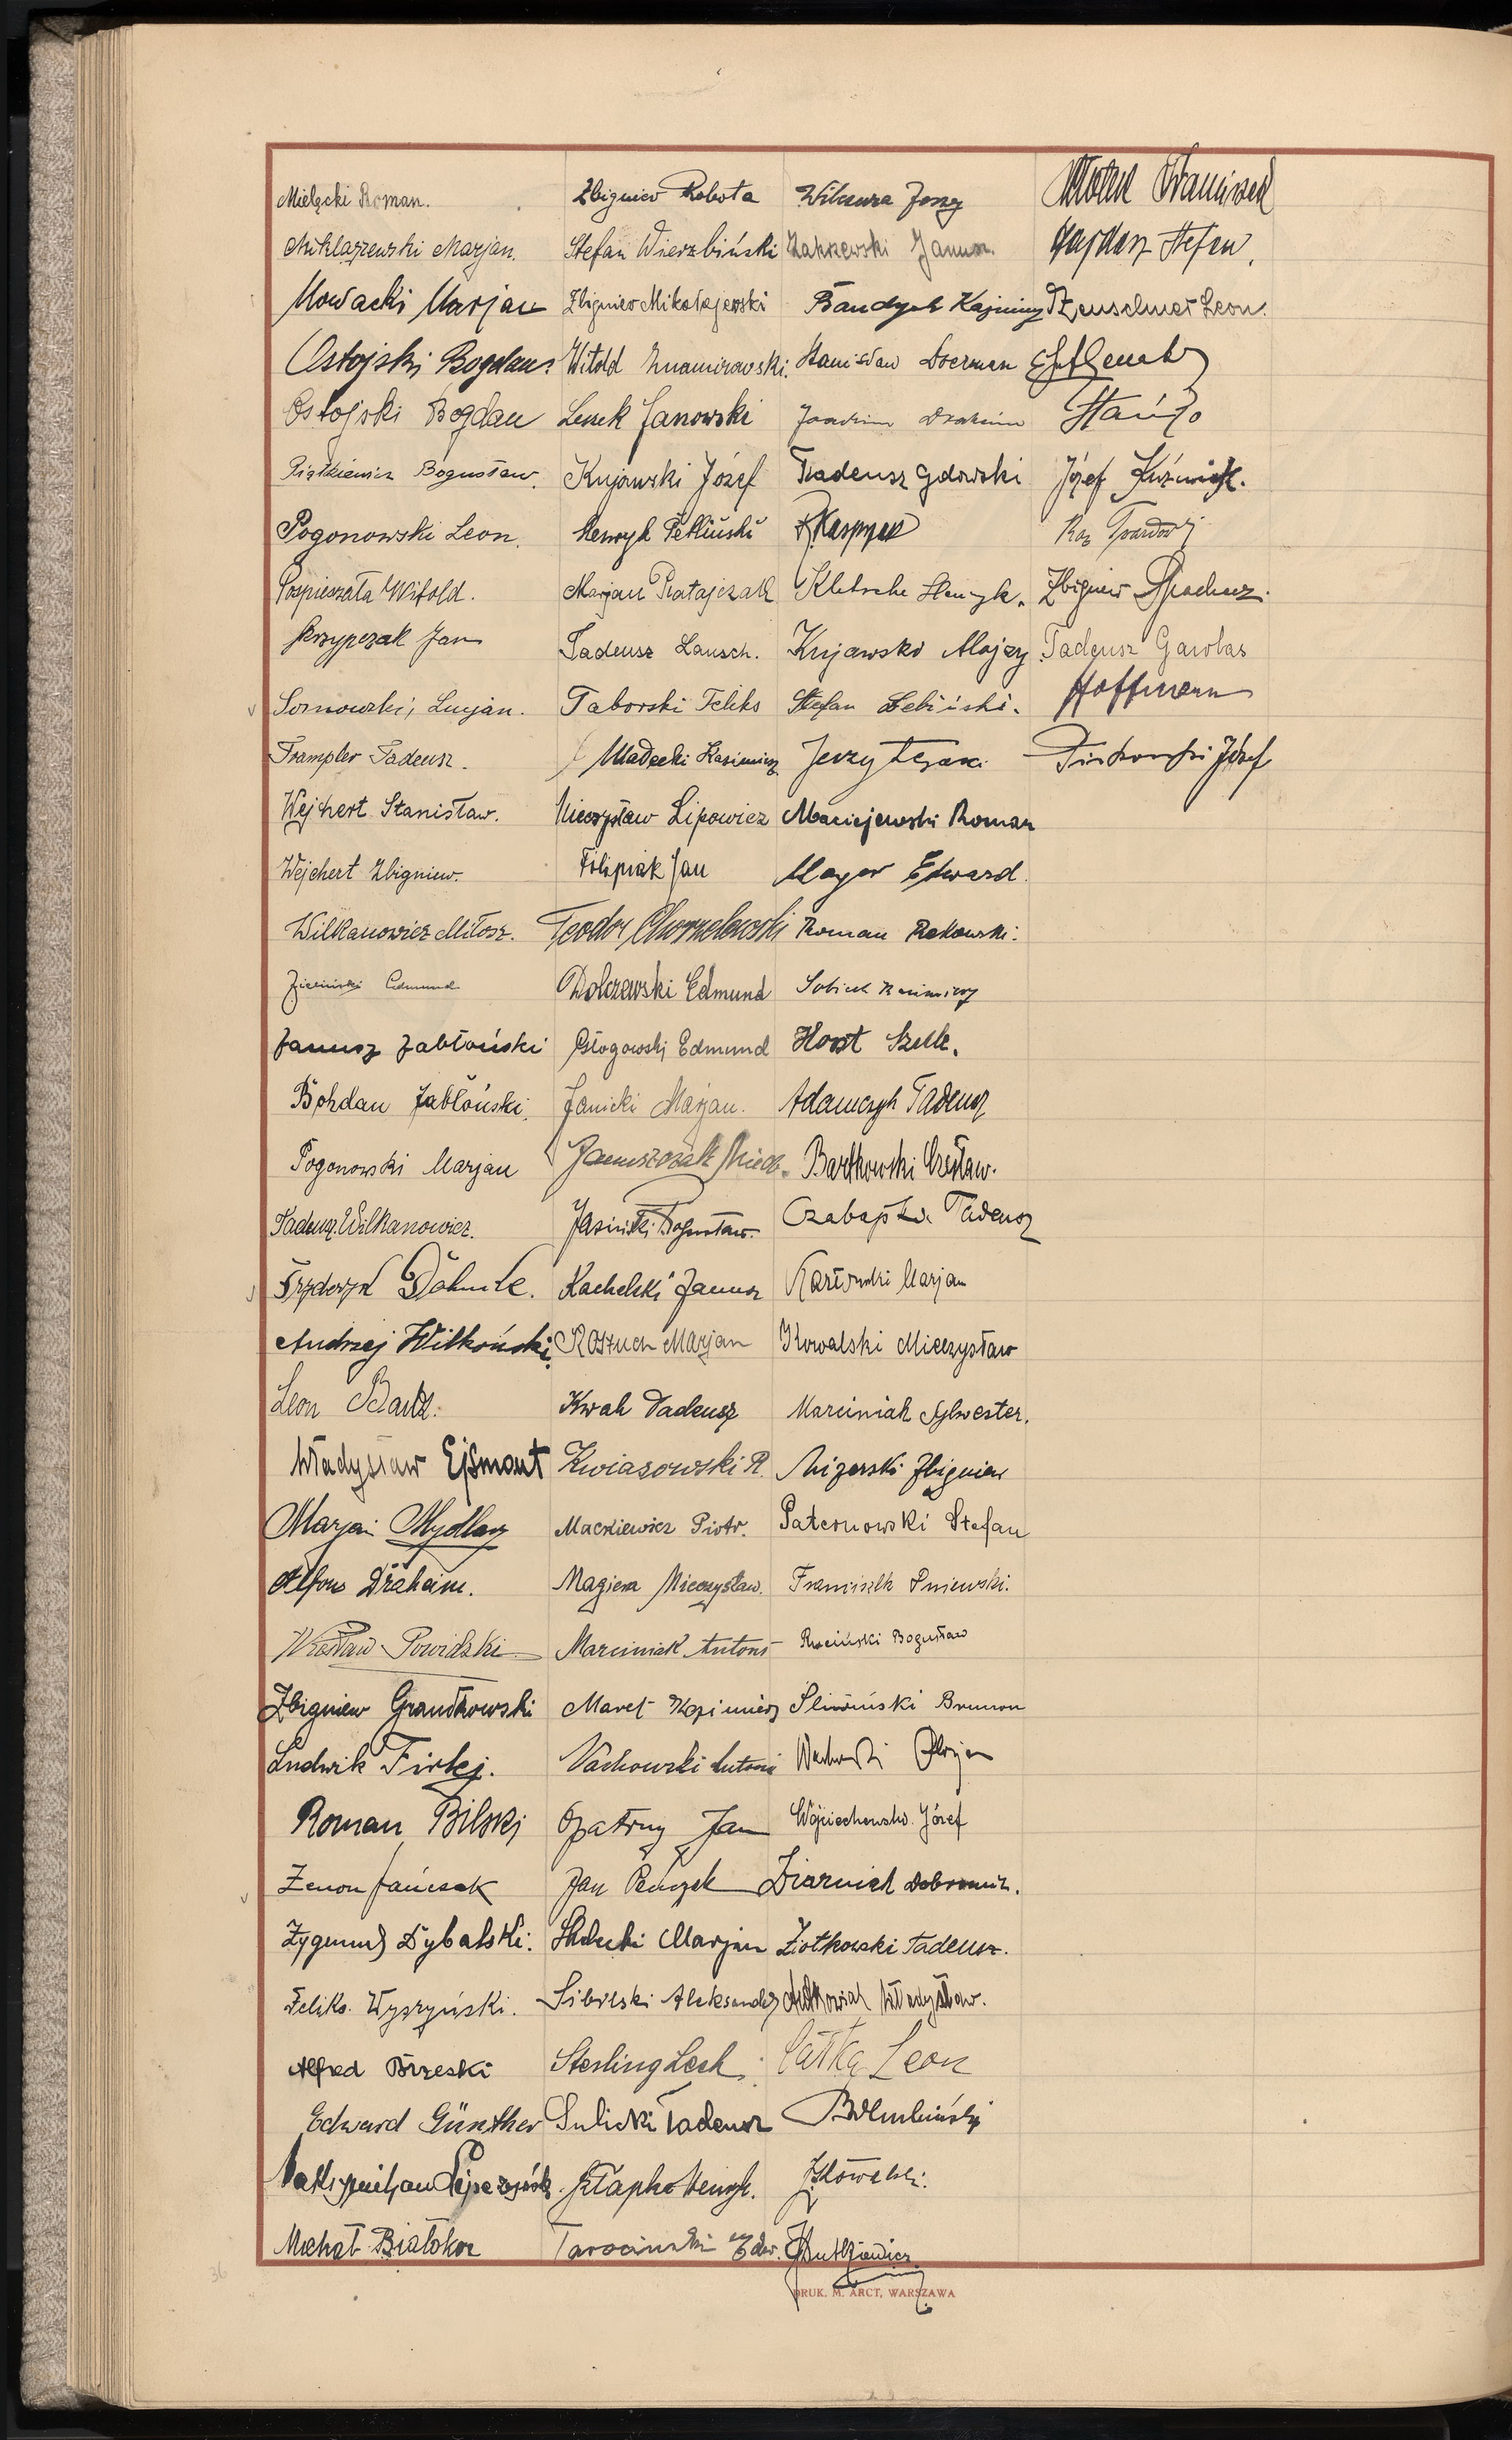 Mielącki Roman.
Miklaszewski Marjan.
Nowacki Marjan
Ostojski Bogdan
Ostojski Bogdan
Piątkiewicz Bogusław.
Pogonowski Leon.
Pospieszała Witold.
Skrzypczak Jan
Sosnowski, Lucjan.
Trampler Tadeusz.
Wejhert Stanisław.
Wejchert Zbigniew.
Wilkanowicz Miłosz.
Zieliński Edmund
Janusz Jabłoński
Bohdan Jabłoński.
Pogonowski Marjan
Tadeusz Wilkanowicz.
Fryderyk Döhnke.
Andrzej Wilkoński
Leon
Władysław Ejsmont
Marjan Mydlarz
Alfons Draheim.
Powidzki
Zbigniew Grandkowski
Ludwik Firlej.
Roman Bilski
Zenon Jańczak
Zygmunt Dybalski.
Feliks Wyszyński.
Alfred Brzeski
Edward Günther
Maksymiljan
Michał Białokoz
Zbigniew Robota
Stefan Wierzbiński
Zbigniew Mikołajewski
Witold Znamirowski.
Leszek Janowski
Kujawski Józef
Henryk Petliński
Marjan Ratajczak
Tadeusz Lausch.
Taborski Feliks
Władecki Kazimierz
Mieczysław Lipowicz
Filipiak Jan
Teodor
Dolczewski Edmund
Głogowski Edmund
Janicki Marjan.
Januszczak Miecz.
Jasiński Bogusław.
Kachelski Janusz
Kożuch Marjan
Kwak Tadeusz
Kwiasowski R.
Mackiewicz Piotr.
Magiera Mieczysław.
Marciniak Antoni
Maret Kazimierz
Nachowski Antoni
Opatrny Jan
Jan
Marjan
Sibilski Aleksander
Sterling Lech.
Sulicki Tadeusz
Szłapka Henryk.
Tarociński Edw.
Wiksura Jerzy
Zakrzewski Janusz.
Bandyk Kazimierz
Stanisław Doerman
Joachim Draheim
Tadeusz Gdowski
Kasprzak
Kletsche Henryk.
Kujawski Alojzy
Stefan Lebiński.
Jerzy
Maciejewski Roman
Mayer Edward.
Roman Rakowski.
Sobiech Kazimierz
Horst Szelle.
Adamczyk Tadeusz
Bartkowski Czesław.
Czabajska Tadeusz
Karłowski Marjan
Kowalski Mieczysław
Marciniak Sylwester.
Mizerski Zbigniew
Paternowski Stefan
Franciszek Pniewski.
Ruciński Bogusław
Śliwiński Brunon
Wojciechowski Józef
Ziarniak Dobromir.
Ziółkowski Tadeusz.
Antkowiak Władysław.
Całka Leon
Franciszek
Stefan
Leon.
Józef Kuźniak.
Zbigniew
Tadeusz Gawbas
Hoffmann
Piotrowski Józef
DRUK. M. ARCT, WARSZAWA